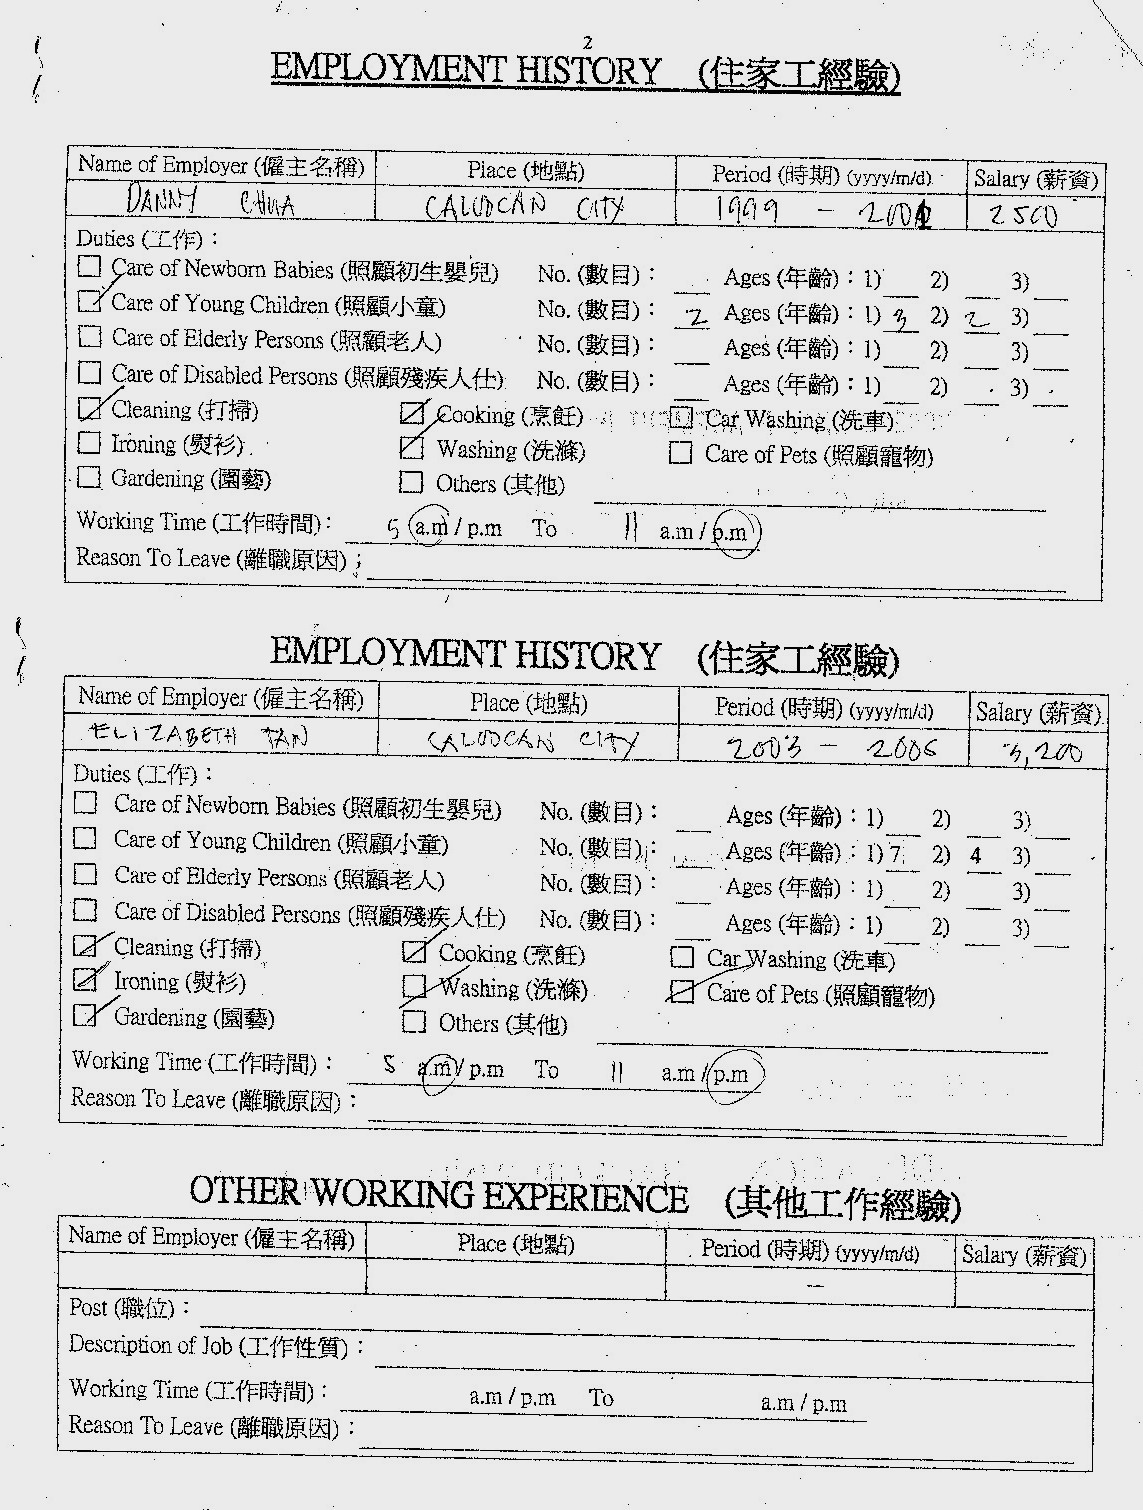 2
EMPLOYMENT HISTORY (住家工經驗)
Name of Employer (僱主名稱) Place (地點) Period (時期) (yyyy/m/d) Salary (薪資)
DANNY CHUA CALOOCAN CITY 1999 - 2002 2500
Duties (工作) :
☐ Care of Newborn Babies (照顧初生嬰兒) No. (數目) : __ Ages (年齡) : 1) __ 2) __ 3) __
☑ Care of Young Children (照顧小童) No. (數目) : 2 Ages (年齡) : 1) 3 2) 2 3) __
☐ Care of Elderly Persons (照顧老人) No. (數目) : __ Ages (年齡) : 1) __ 2) __ 3) __
☐ Care of Disabled Persons (照顧殘疾人仕) No. (數目) : __ Ages (年齡) : 1) __ 2) __ 3) __
☑ Cleaning (打掃) ☑ Cooking (烹飪) ☐ Car Washing (洗車)
☐ Ironing (熨衫) ☑ Washing (洗滌) ☐ Care of Pets (照顧寵物)
☐ Gardening (園藝) ☐ Others (其他)
Working Time (工作時間) : 5 a.m / p.m To 11 a.m / p.m
Reason To Leave (離職原因) :
EMPLOYMENT HISTORY (住家工經驗)
Name of Employer (僱主名稱) Place (地點) Period (時期) (yyyy/m/d) Salary (薪資)
ELIZABETH TAN CALOOCAN CITY 2003 - 2006 3,200
Duties (工作) :
☐ Care of Newborn Babies (照顧初生嬰兒) No. (數目) : __ Ages (年齡) : 1) __ 2) __ 3) __
☐ Care of Young Children (照顧小童) No. (數目) : __ Ages (年齡) : 1) 7 2) 4 3) __
☐ Care of Elderly Persons (照顧老人) No. (數目) : __ Ages (年齡) : 1) __ 2) __ 3) __
☐ Care of Disabled Persons (照顧殘疾人仕) No. (數目) : __ Ages (年齡) : 1) __ 2) __ 3) __
☑ Cleaning (打掃) ☑ Cooking (烹飪) ☐ Car Washing (洗車)
☑ Ironing (熨衫) ☑ Washing (洗滌) ☑ Care of Pets (照顧寵物)
☑ Gardening (園藝) ☐ Others (其他)
Working Time (工作時間) : 5 a.m / p.m To 11 a.m / p.m
Reason To Leave (離職原因) :
OTHER WORKING EXPERIENCE (其他工作經驗)
Name of Employer (僱主名稱) Place (地點) Period (時期) (yyyy/m/d) Salary (薪資)
–
Post (職位) :
Description of Job (工作性質) :
Working Time (工作時間) : a.m / p.m To a.m / p.m
Reason To Leave (離職原因) :